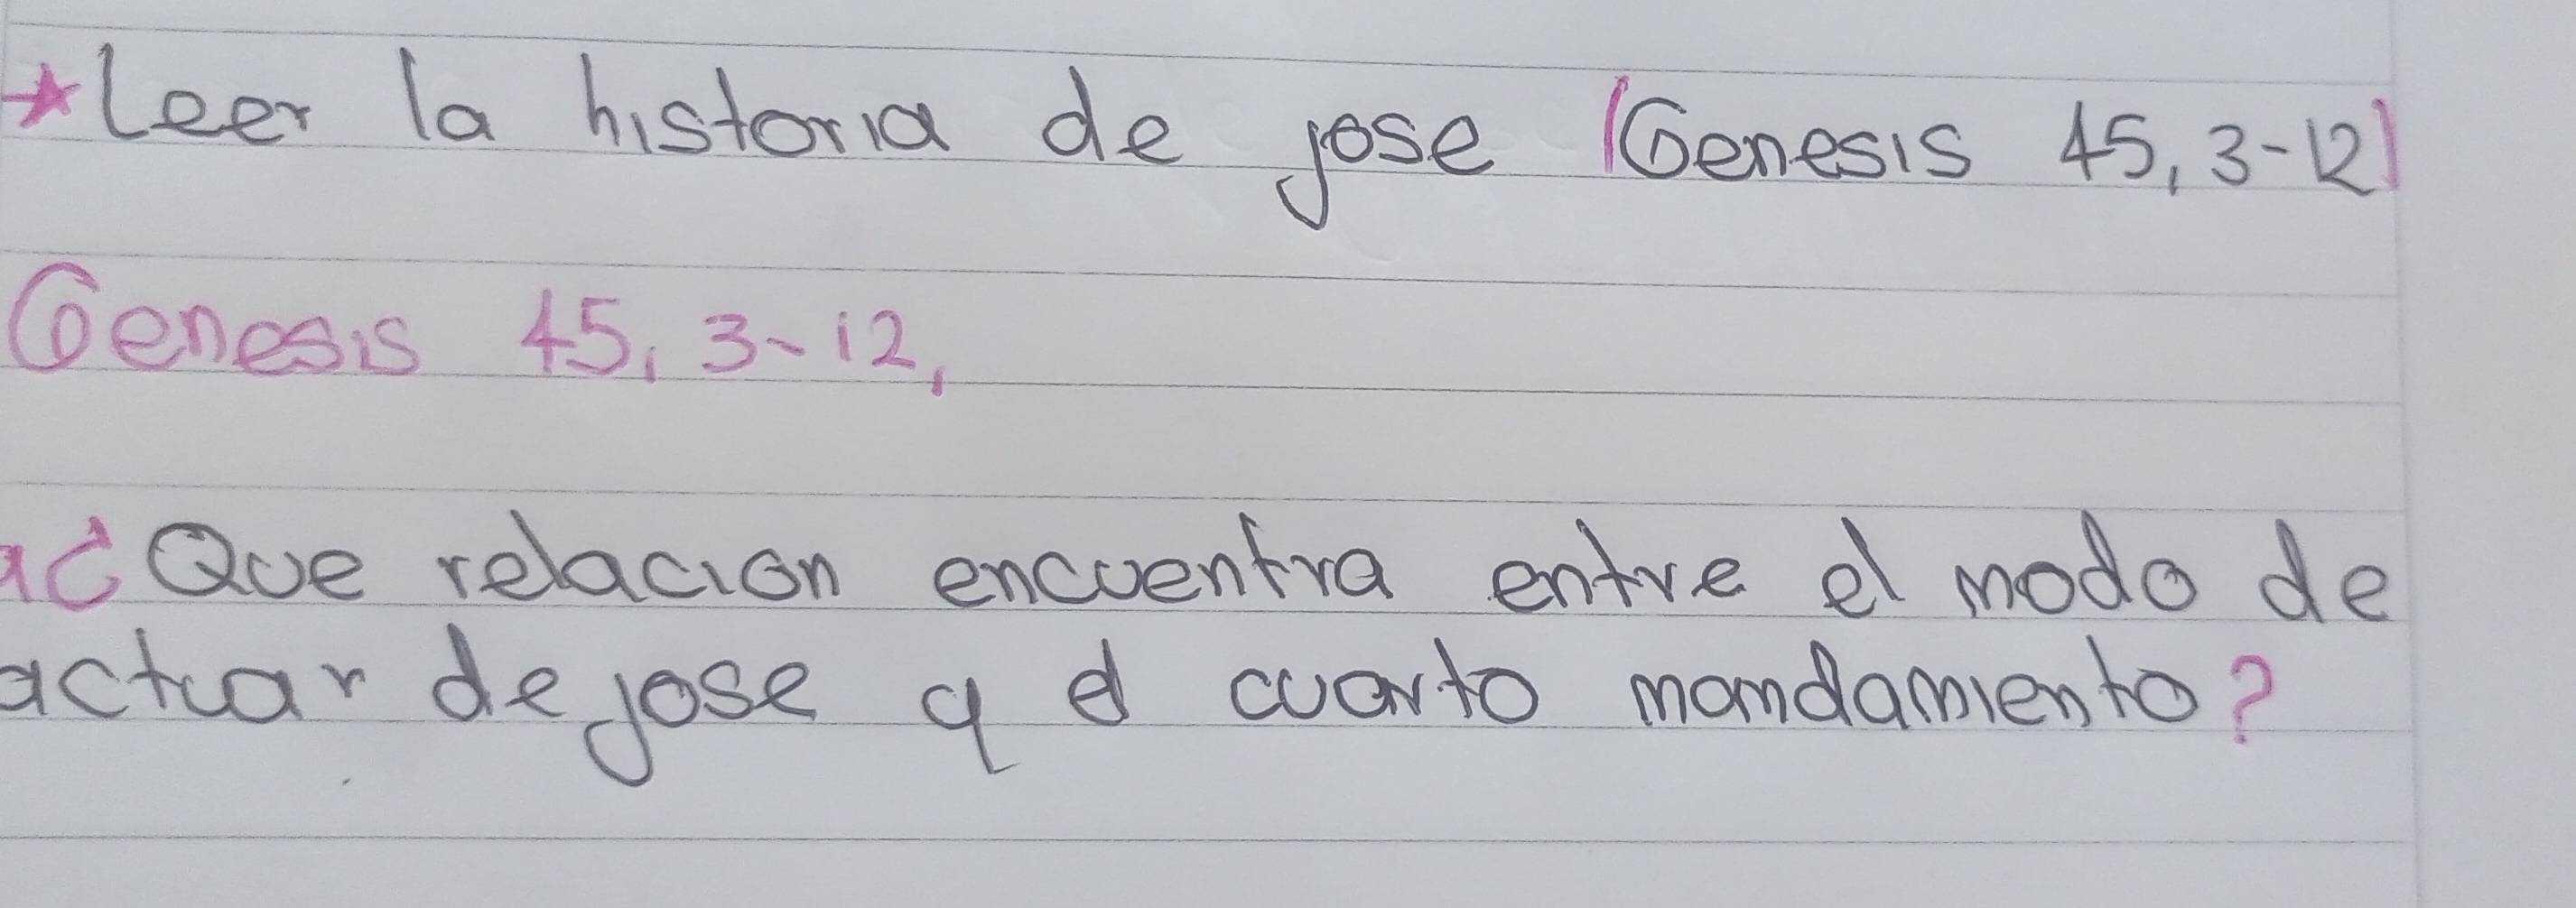 ★ Leer la historia de jose (Genesis 45, 3-12)
Genesis 45, 3-12,
a¿ Que relacion encuentra entre el modo de
actuar de jose y el cuarto mandamiento?